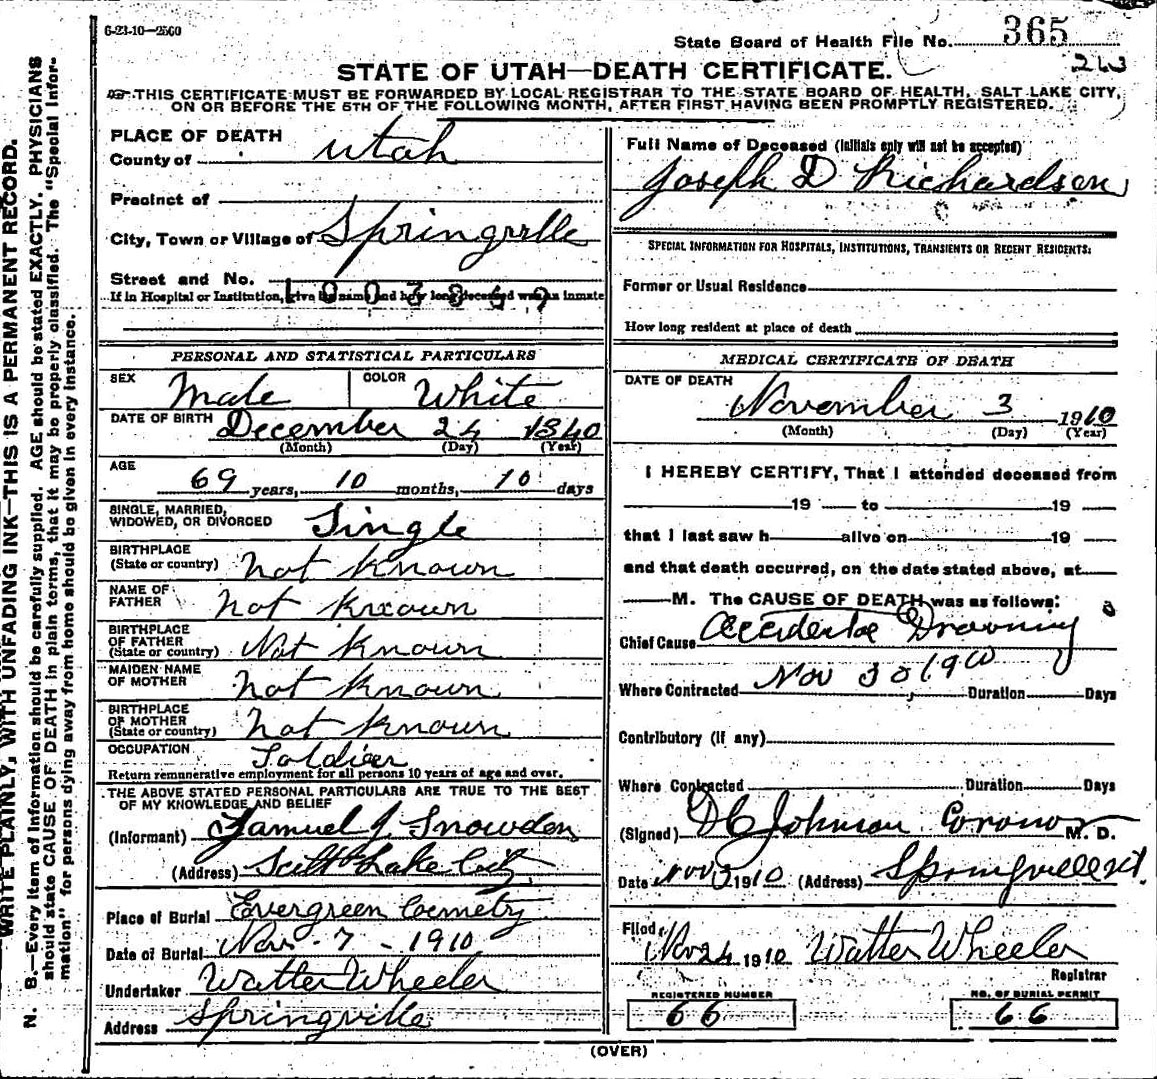 6-23-10—2500
State Board of Health File No. 365
STATE OF UTAH—DEATH CERTIFICATE.
THIS CERTIFICATE MUST BE FORWARDED BY LOCAL REGISTRAR TO THE STATE BOARD OF HEALTH, SALT LAKE CITY,
ON OR BEFORE THE 5TH OF THE FOLLOWING MONTH, AFTER FIRST HAVING BEEN PROMPTLY REGISTERED.
WRITE PLAINLY, WITH UNFADING INK—THIS IS A PERMANENT RECORD.
N. B.—Every item of information should be carefully supplied. AGE should be stated EXACTLY. PHYSICIANS
should state CAUSE OF DEATH in plain terms, that it may be properly classified. The "Special Infor-
mation" for persons dying away from home should be given in every instance.
PLACE OF DEATH
County of Utah
Precinct of
City, Town or Village of Springville
Street and No.
If in Hospital or Institution, give its name and how long deceased was an inmate
PERSONAL AND STATISTICAL PARTICULARS
SEX Male COLOR White
DATE OF BIRTH December 24 1840
(Month) (Day) (Year)
AGE
69 years, 10 months, 10 days
SINGLE, MARRIED,
WIDOWED, OR DIVORCED Single
BIRTHPLACE
(State or country) Not Known
NAME OF
FATHER Not Known
BIRTHPLACE
OF FATHER
(State or country) Not Known
MAIDEN NAME
OF MOTHER Not Known
BIRTHPLACE
OF MOTHER
(State or country) Not Known
OCCUPATION Soldier
Return remunerative employment for all persons 10 years of age and over.
THE ABOVE STATED PERSONAL PARTICULARS ARE TRUE TO THE BEST
OF MY KNOWLEDGE AND BELIEF
(Informant) Samuel J. Snowden
(Address) Salt Lake City
Place of Burial Evergreen Cemetry
Date of Burial Nov. 7 - 1910
Undertaker Walter Wheeler
Address Springville
Full Name of Deceased (Initials only will not be accepted)
Joseph D Richardson
SPECIAL INFORMATION FOR HOSPITALS, INSTITUTIONS, TRANSIENTS OR RECENT RESIDENTS:
Former or Usual Residence
How long resident at place of death
MEDICAL CERTIFICATE OF DEATH
DATE OF DEATH
November 3 1910
(Month) (Day) (Year)
I HEREBY CERTIFY, That I attended deceased from
19 to 19
that I last saw h alive on 19
and that death occurred, on the date stated above, at
M. The CAUSE OF DEATH was as follows:
Chief Cause Accidental Drowning
Where Contracted Nov 3 1910 Duration Days
Contributory (if any)
Where Contracted Duration Days
(Signed) D C Johnson Coronor M. D.
Date Nov 1910 (Address) Springville Ut.
Filed Nov 24 1910 Walter Wheeler
Registrar
REGISTERED NUMBER
66
NO. OF BURIAL PERMIT
66
(OVER)